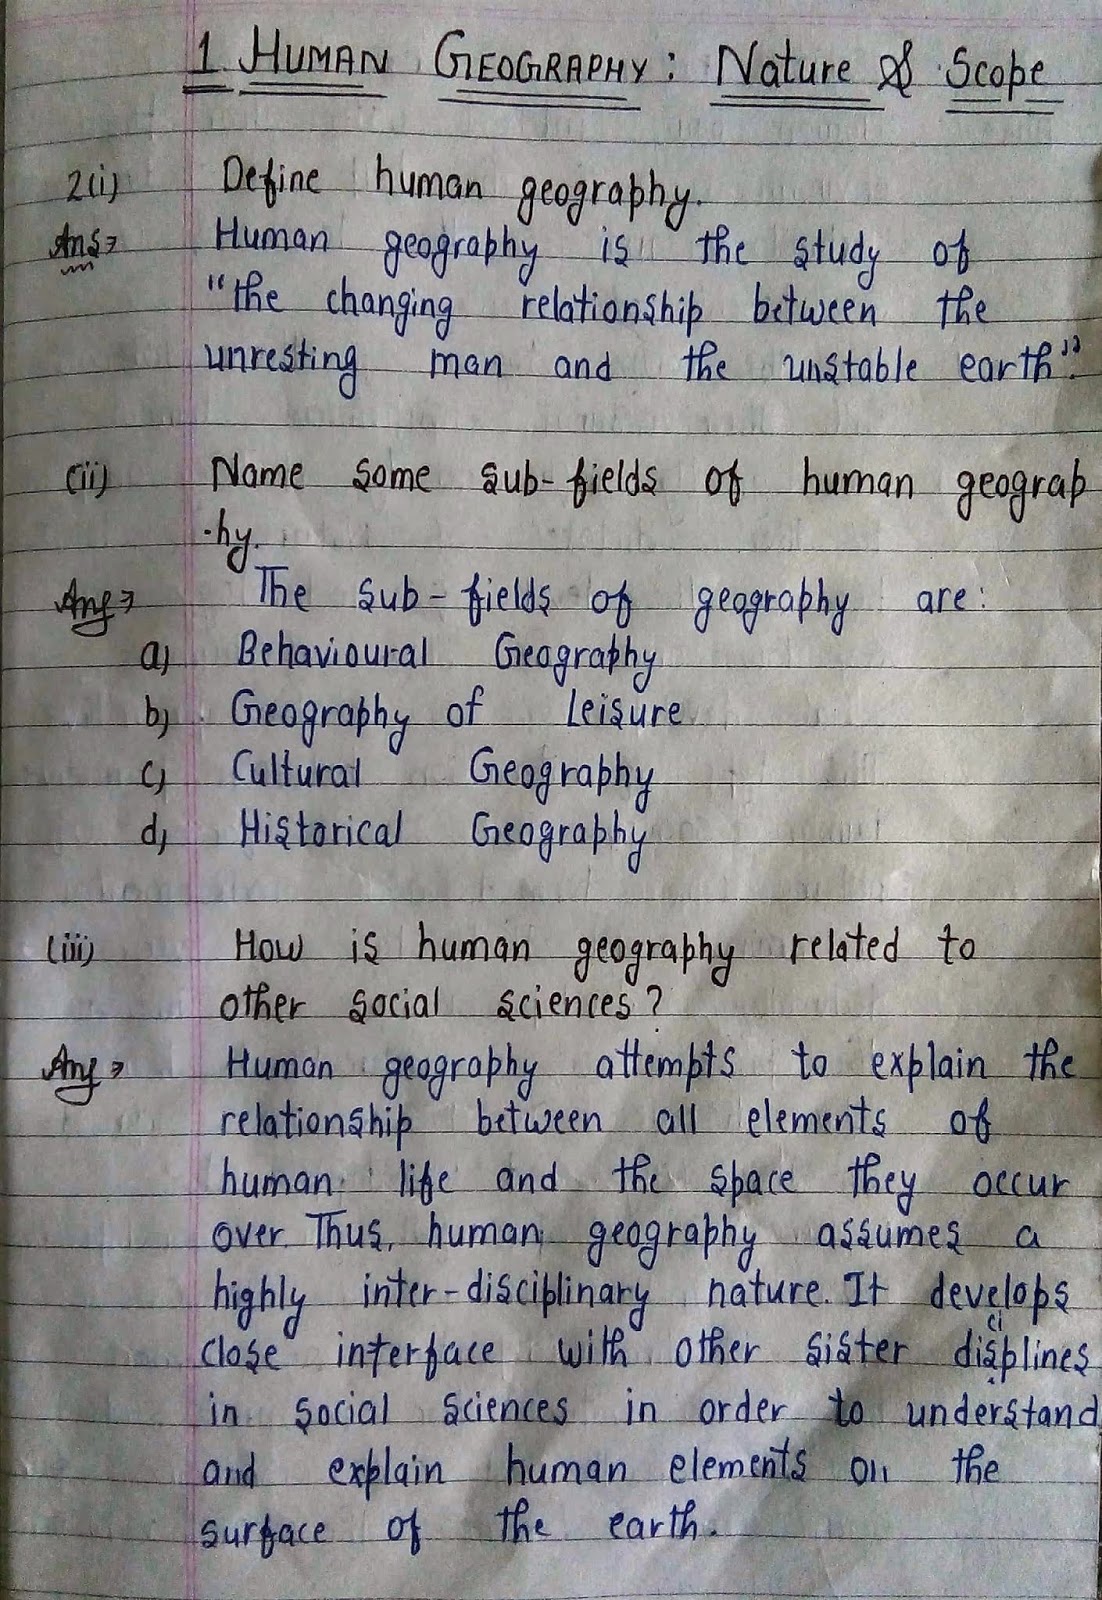 1 HUMAN GEOGRAPHY: Nature & Scope
2(i) Define human geography.
Ans⇒ Human geography is the study of
"the changing relationship between the
unresting man and the unstable earth".
(ii) Name some sub-fields of human geograp
-hy.
Ans⇒ The sub-fields of geography are:
a) Behavioural Geography
b) Geography of Leisure
c) Cultural Geography
d) Historical Geography
(iii) How is human geography related to
other social sciences?
Ans⇒ Human geography attempts to explain the
relationship between all elements of
human life and the space they occur
over. Thus, human geography assumes a
highly inter-disciplinary nature. It develops
close interface with other sister disciplines
in social sciences in order to understand
and explain human elements on the
surface of the earth.